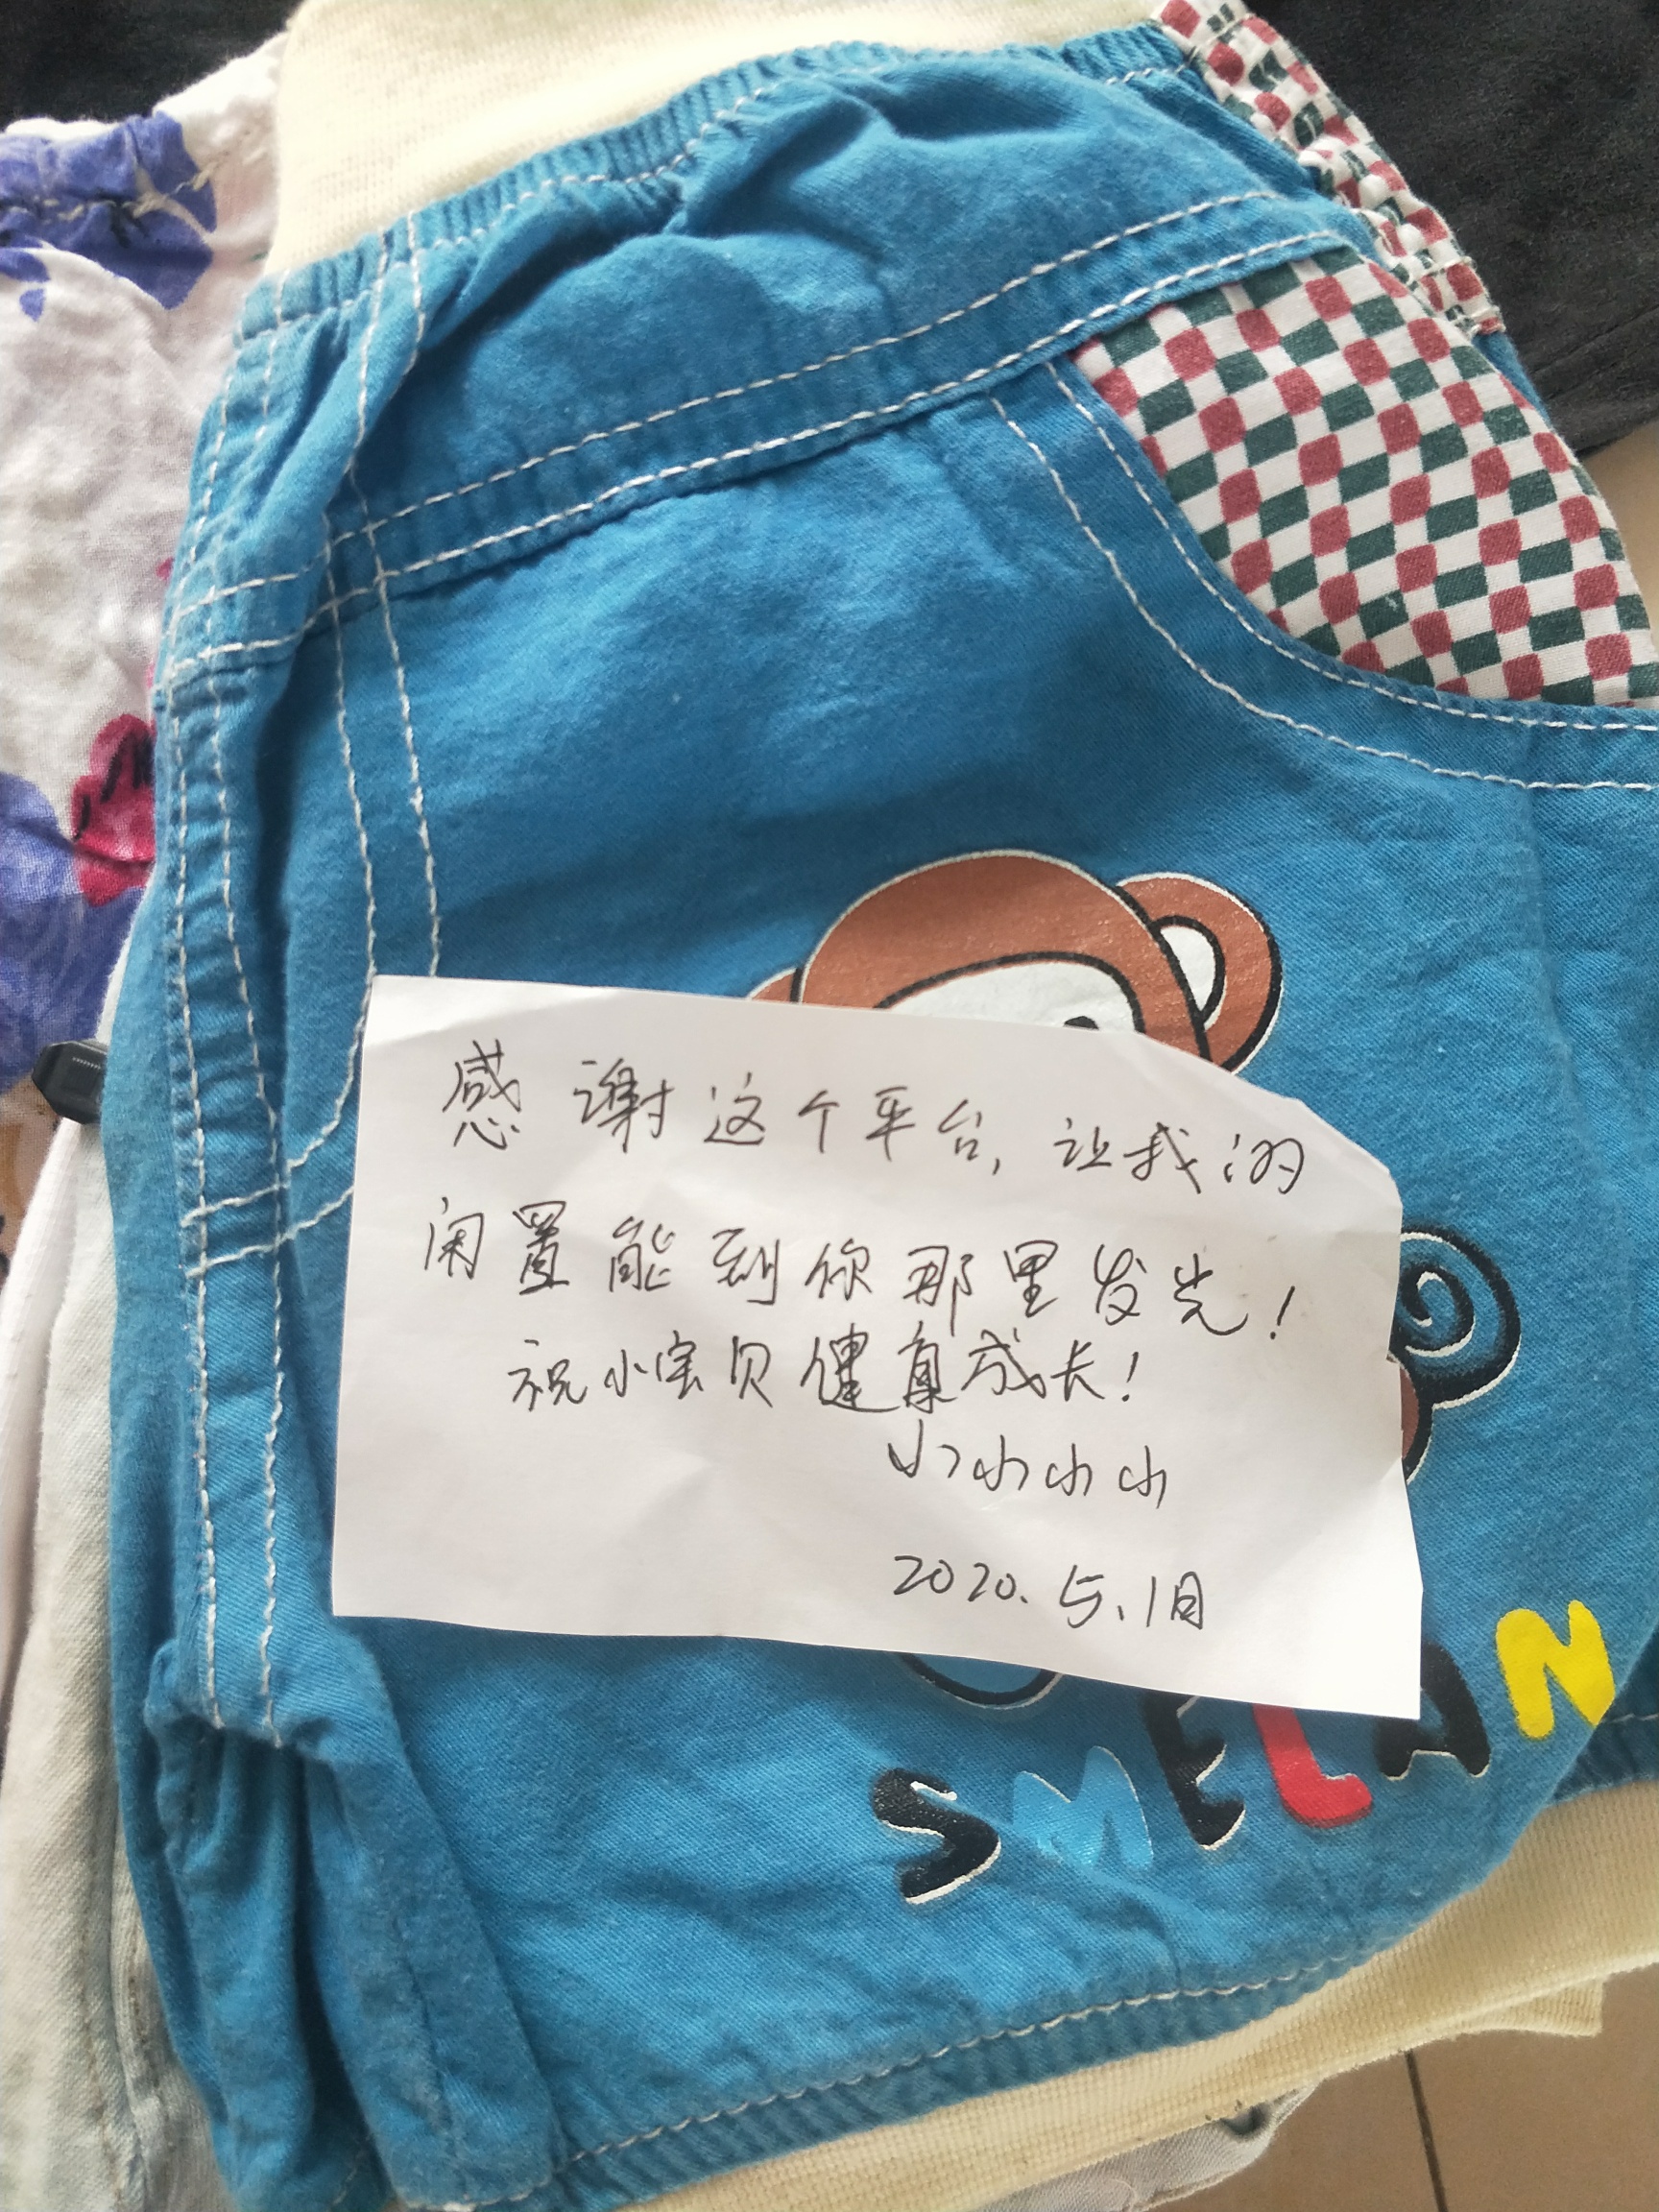 感谢这个平台,让我的
闲置能到你那里发光!
祝小宝贝健身成长!
小小小小
2020.5.1日
SMELAN